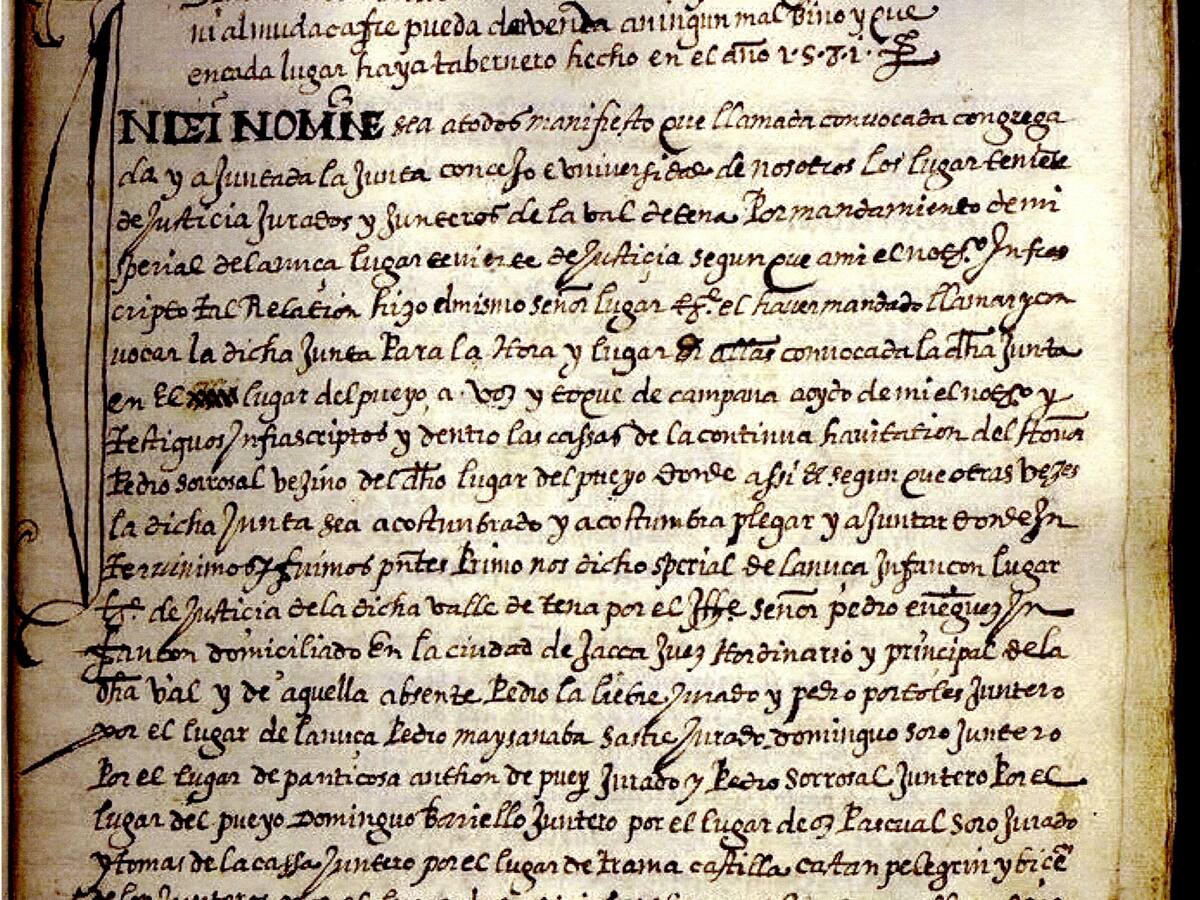 ni almudacafre pueda de vender a ningun mal vino y que
en cada lugar haya tabernero hecho en el año 1571
IN DEI NOMINE sea a todos manifiesto que llamada convocada congrega
da y ajuntada la Junta concejo e vniuersidad de nosotros los lugarteniente
de Justicia Jurados y Junteros de la val de tena Por mandamiento de mi
sperial de lanuca lugarteniente de Justicia segun que a mi el notº Infras
cripto tal Relacion hizo el mismo señor lugar tte. el haver mandado llamar y con
vocar la dicha Junta Para la Hora y lugar convocada la dha Junta
en El lugar del pueyo a voz y toque de campana oydo de mi el notº y
testiguos Infrascriptos y dentro las cassas de la continua havitation del Honor
Pedro sorrosal vezino del dho lugar del pueyo donde assi segun que otras vezes
la dicha Junta sea acostunbrado y acostumbra plegar y ajuntar donde In
teruinimos y fuimos pntes Primo nos dicho sperial de lanuca Infançon lugar
tte. de Justicia de la dicha valle de tena por el señor pedro In
fançon domiciliado En la ciudad de Jacca Juez Hordinario y principal de la
dha val y de aquella absente Pedro la liebre Jurado y pedro portoles Juntero
por el lugar de lanuca Pedro maysanaba sastre Jurado dominguo soro Juntero
Por el lugar de panticosa anthon de puey Jurado y Pedro Sorrosal Juntero Por El
lugar del pueyo Dominguo Bariello Juntero por el lugar de oz Pascual Soro Jurado
y tomas de la cassa Juntero por el lugar de trama castilla catan pelegrin y bicē